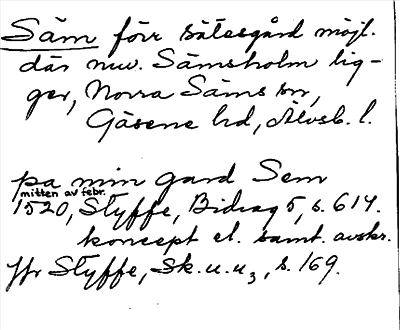 Säm förr sätesgård möjl.
där nuv. Sämsholm lig-
ger, Norra Säms sn,
Gäsene hd, Älvsb. l.
pa min gard Sem
mitten av febr.
1520, Styffe, Bidrag 5, s. 614.
koncept el. samt. avskr.
Jfr Styffe, Sk. u. u3, s. 169.